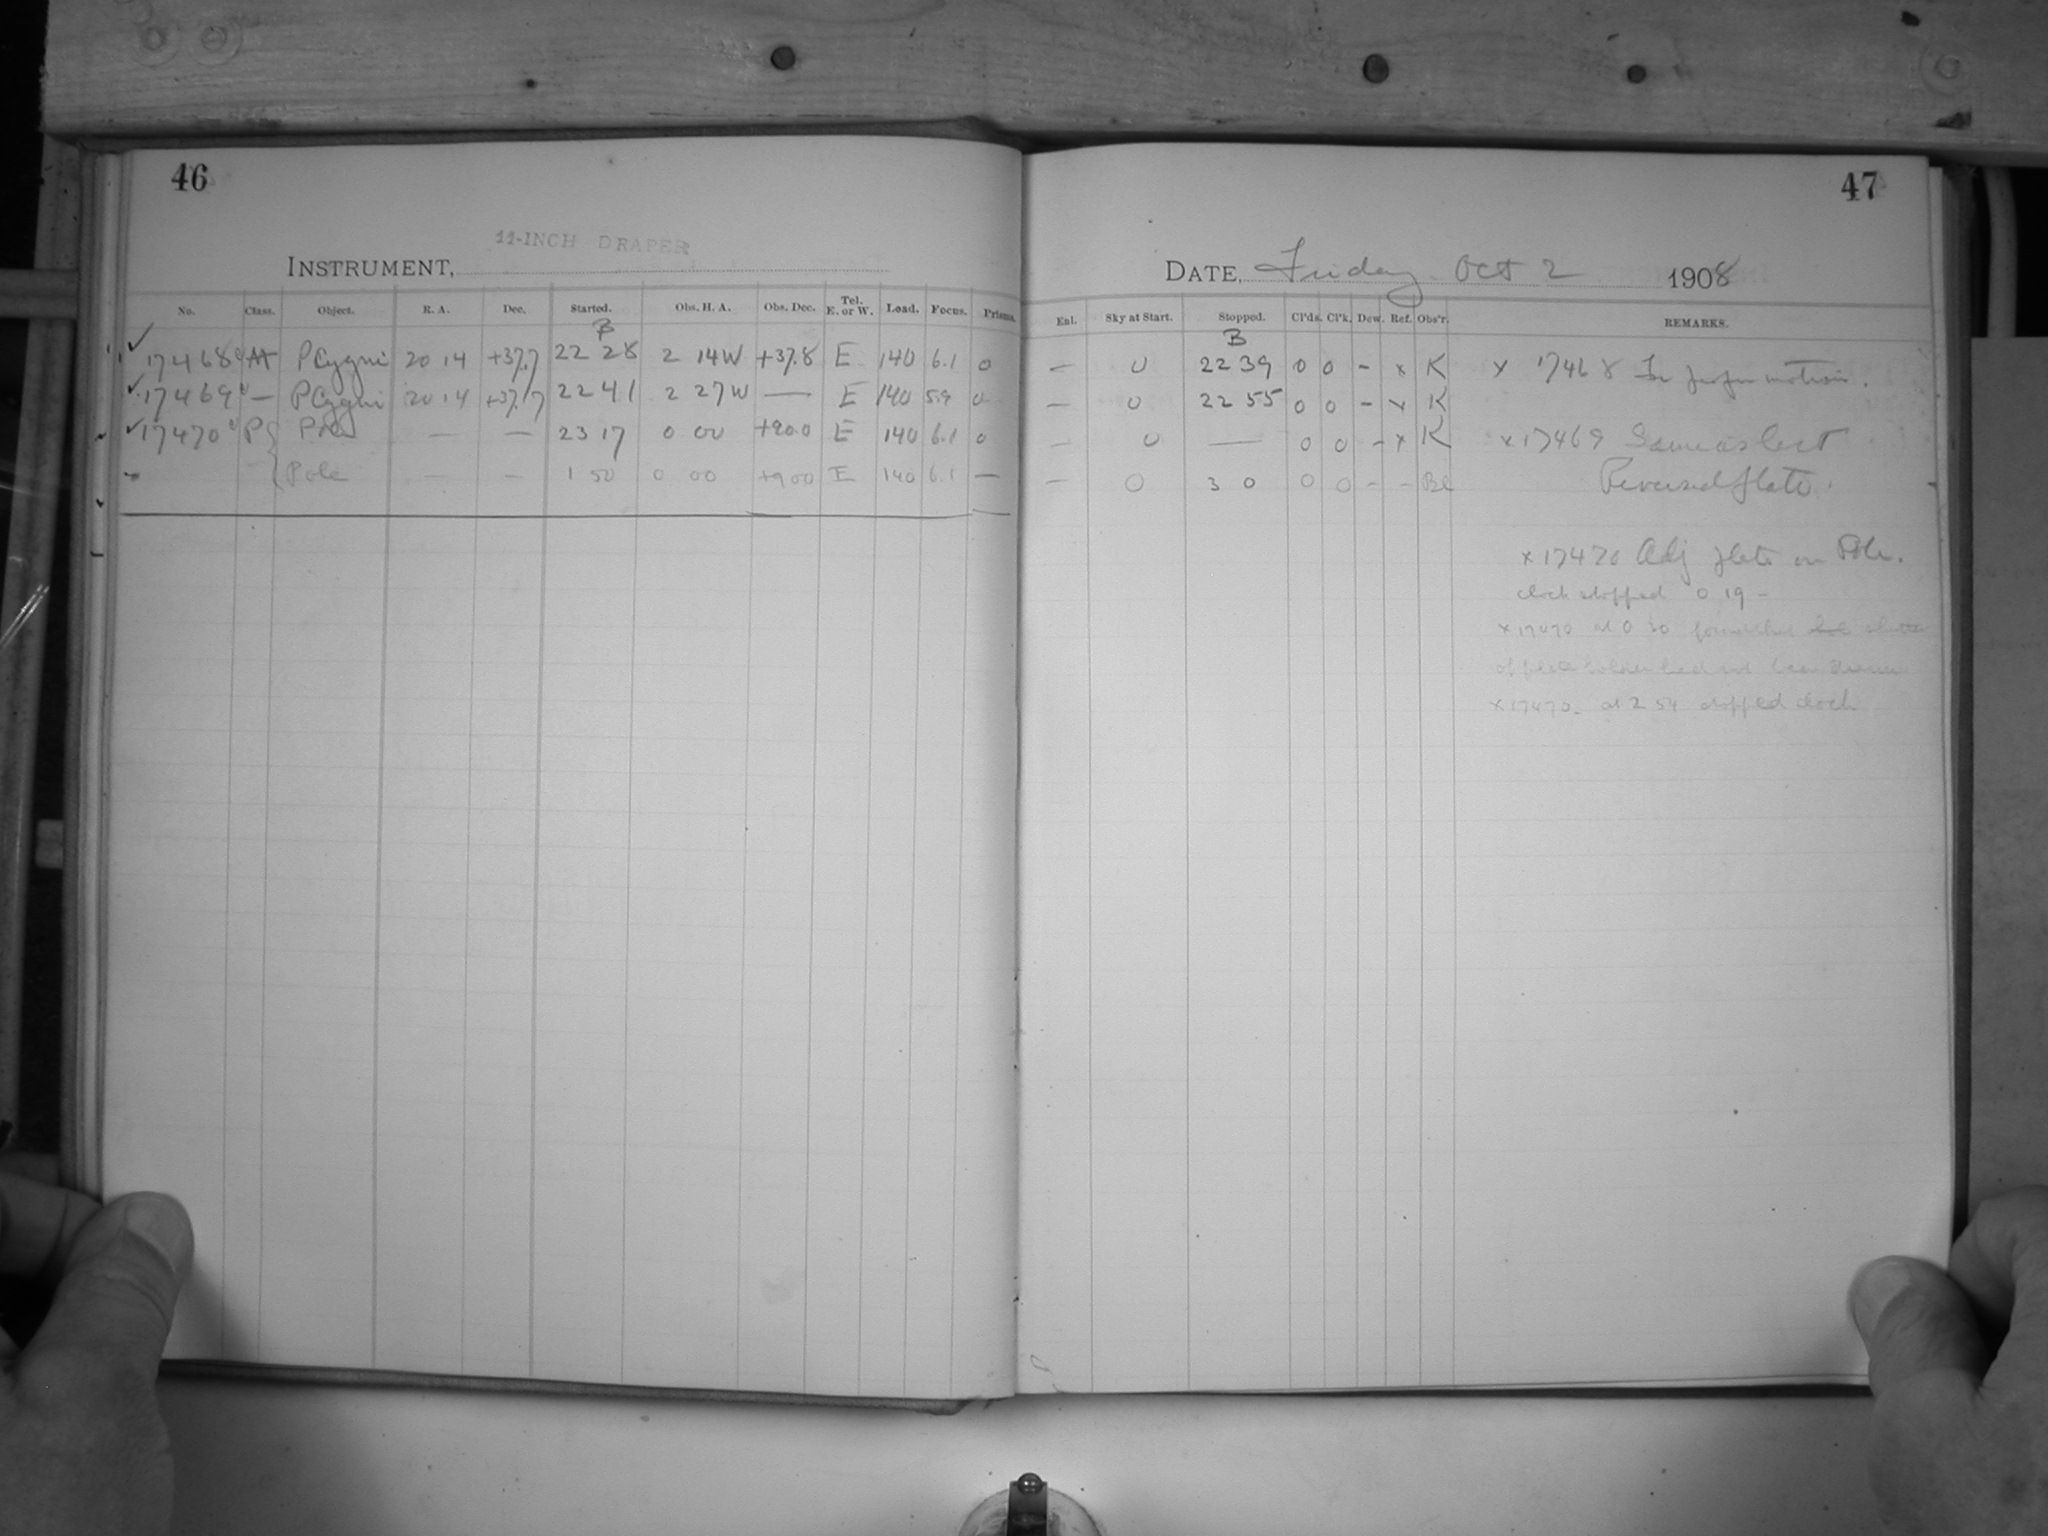 46
11-INCH DRAPER
INSTRUMENT,
No. Class. Object. R. A. Dec. Started. Obs. H. A. Obs. Dec. Tel. E. or W. Load. Focus. Prisms.
B
17468 A P Cygni 20 14 +37.7 22 28 2 14W +37.8 E 140 6.1 0
17469 — P Cygni 20 14 +37.7 22 41 2 27W — E 140 5.9 0
17470 P Pole — — 23 17 0 00 +90.0 E 140 6.1 0
Pole — — 1 50 0 00 +9000 E 140 6.1 —
47
DATE, Friday Oct 2 1908
Enl. Sky at Start. Stopped. Cl'ds. Cl'k. Dew. Ref. Obs'r. REMARKS.
B
— 0 22 39 0 0 - x K x 17468 For proper motion.
— 0 22 55 0 0 - x K
— 0 — 0 0 - x K x 17469 Same as last
— 0 3 0 0 0 - - Be Reversed plate.
x 17470 Adj plate on Pole.
clock stopped 0 19 -
x 17470 at 0 30 found that shutter
of plate holder had not been drawn
x 17470 - at 2 54 stopped clock